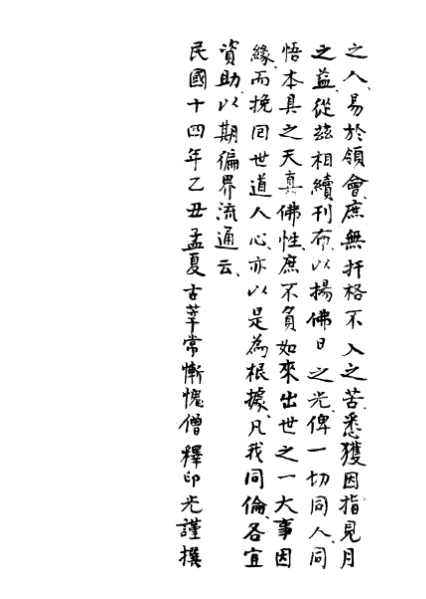 之人、易於領會、庶無扞格不入之苦、悉獲因指見月
之益、從茲相續刊布、以揚佛日之光、俾一切同人、同
悟本具之天真佛性、庶不負如來出世之一大事因
緣、而挽回世道人心、亦以是為根據、凡我同倫、各宜
資助、以期徧界流通云、
民國十四年乙丑孟夏古莘常慚愧僧釋印光謹撰